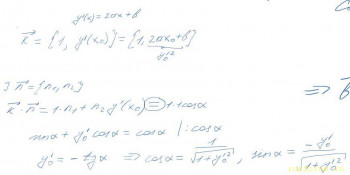 y'(x) = 2ax + b
k⃗ = {1, y'(x₀)} = {1, 2ax₀ + b}
y₀'
∃ n⃗ = {n₁, n₂}
k⃗ · n⃗ = 1·n₁ + n₂ y'(x₀) = 1·1·cosα
sinα + y₀' cosα = cosα |: cosα
y₀' = -tgα ⇒ cosα = 1/√(1+y₀'²) , sinα = -y₀'/√(1+y₀'²)
⇒